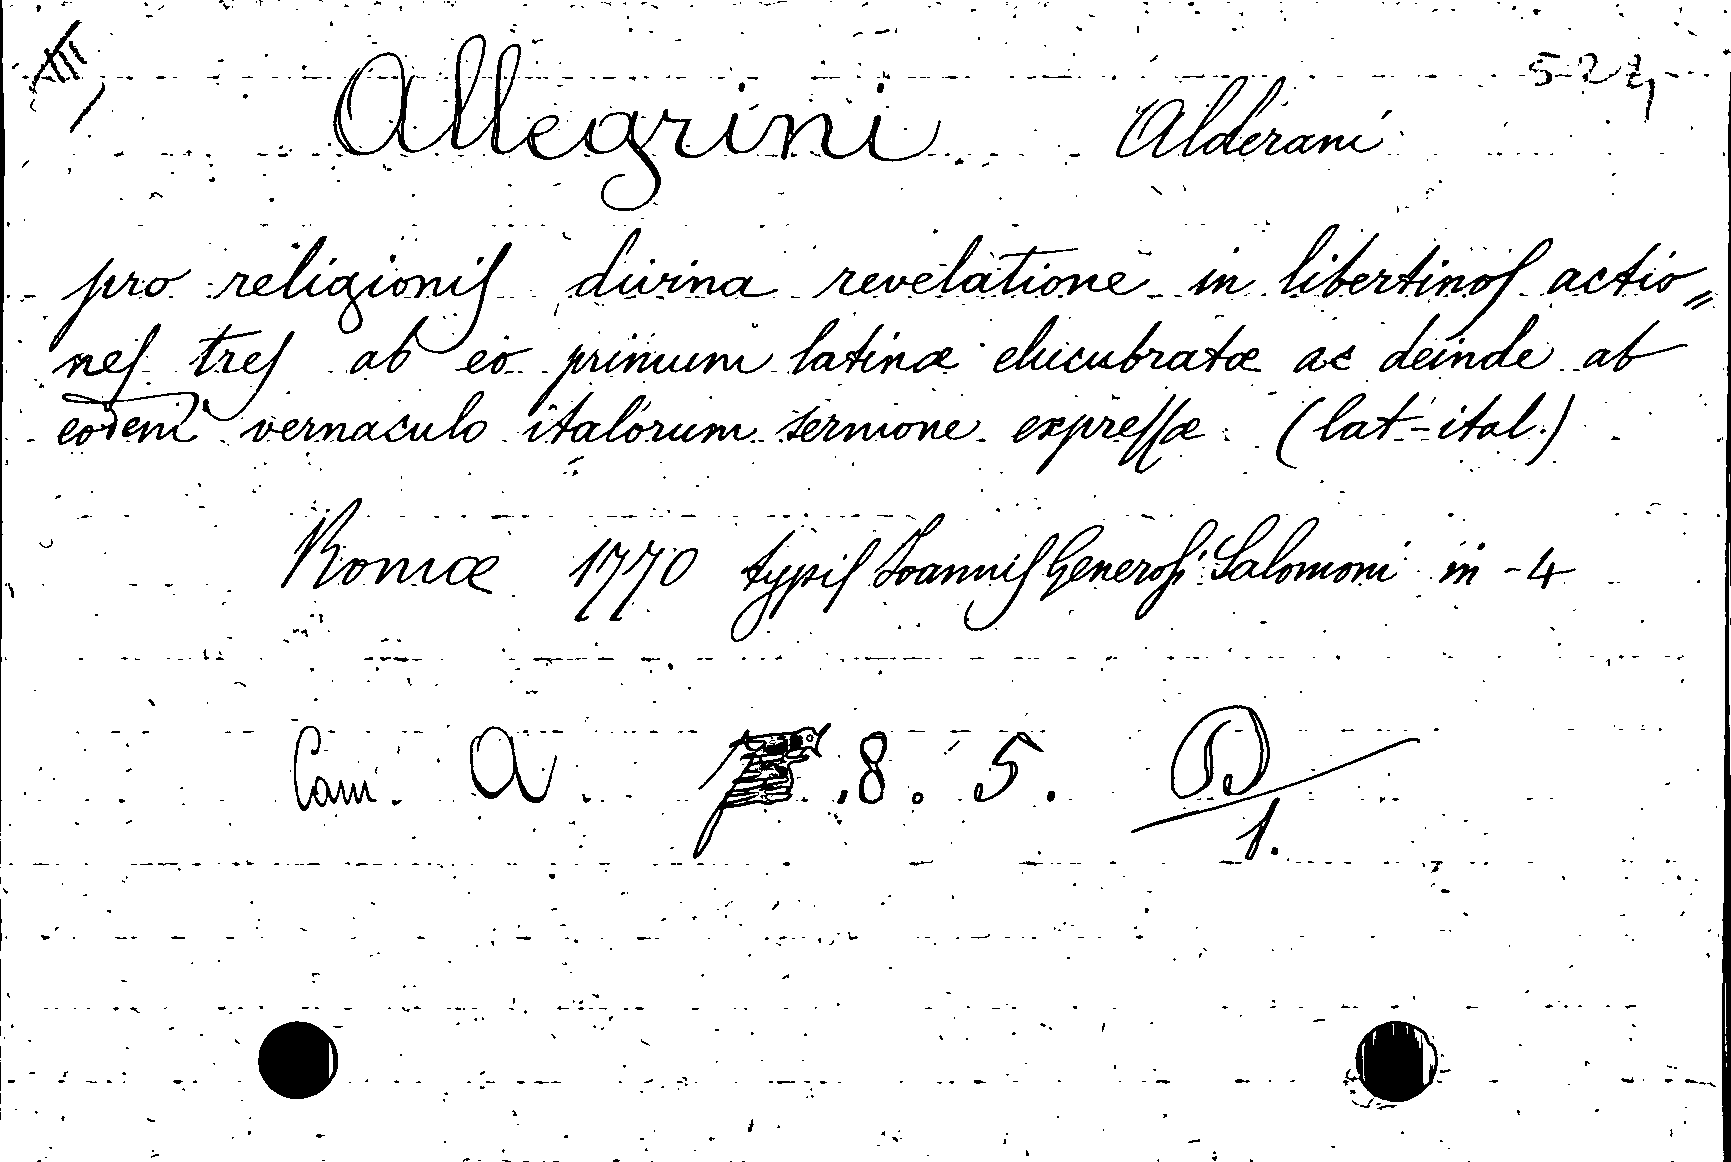 524
Allegrini Alderani
pro religionis divina revelatione in libertinos actio„
nes tres ab eo primum latinæ elucubratæ ac deinde ab
eodem vernaculo italorum sermone expressæ (lat-ital.)
Romæ 1770 typis Joannis Generosi Salomoni in-4
Cam. A .8. 5. D/1.